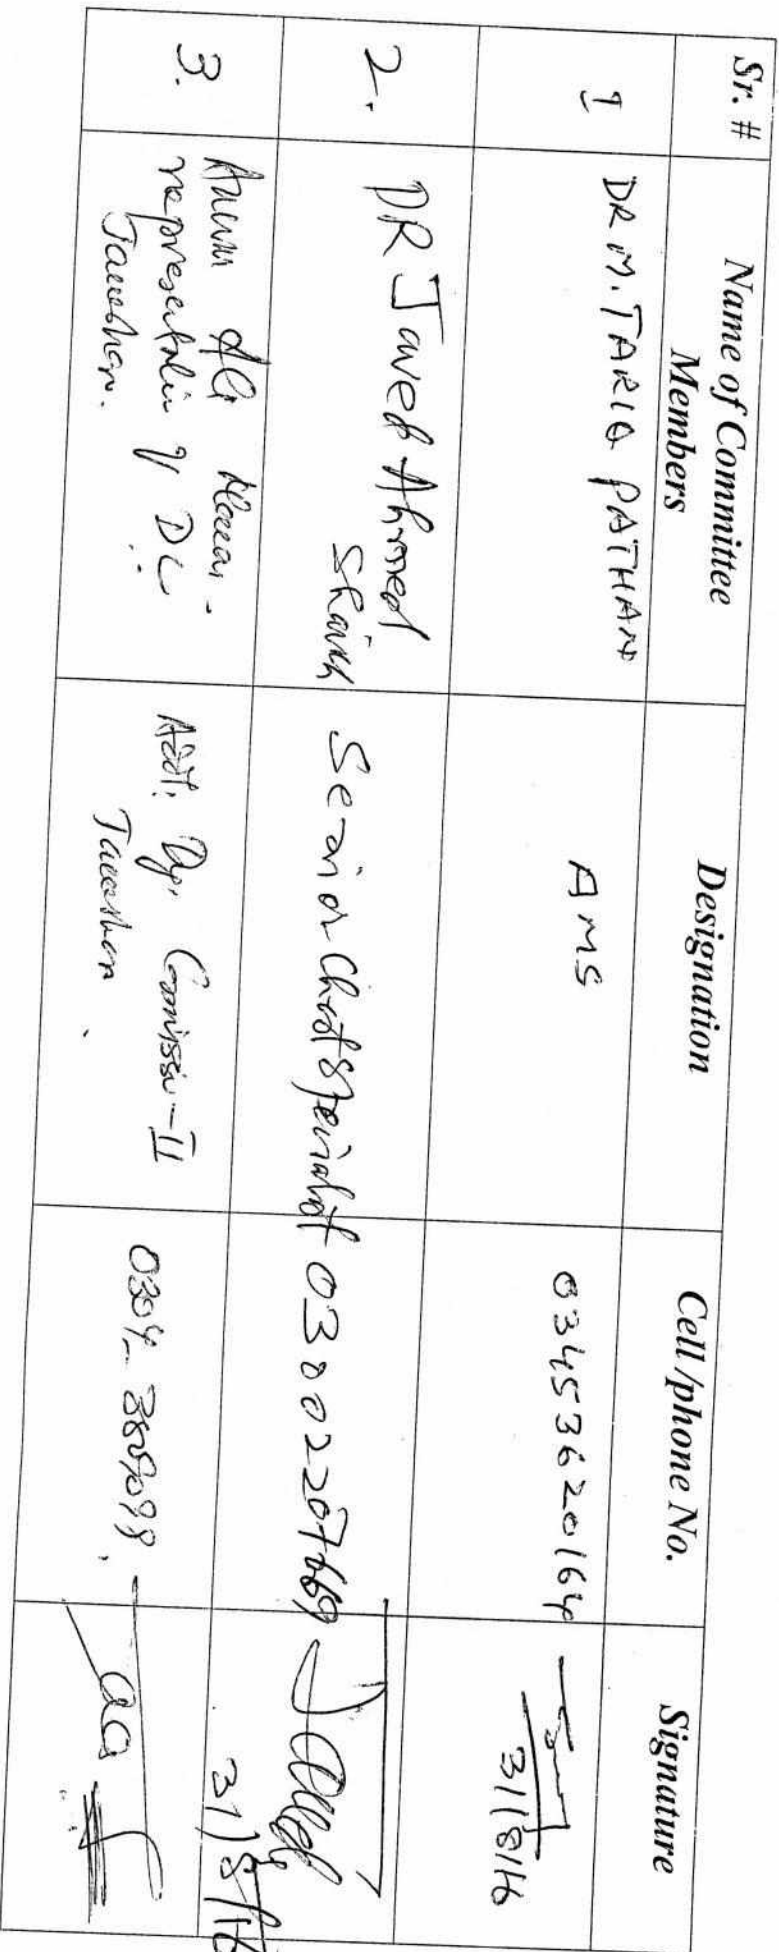 Sr. # Name of Committee Members Designation Cell /phone No. Signature
1 DR M. TARIQ PATHAN AMS 03453620164
31/8/16
2. DR Javed Ahmed Shaikh Senior Chest Specialist 03002207669 Javed
31/8/16
3. Ali
representative of DC
Addl. Dy. Commissi-II
0304-